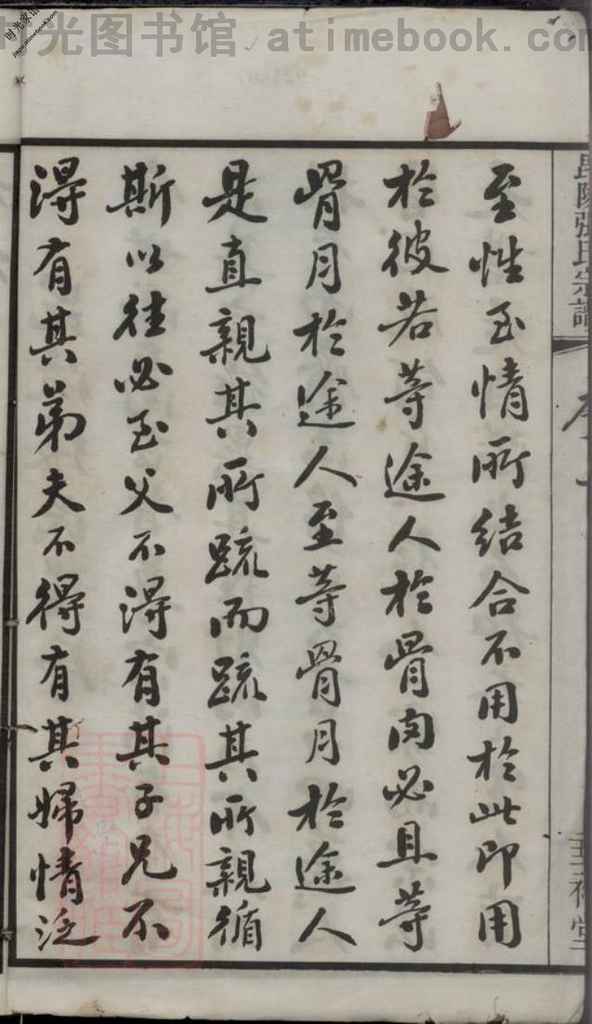 时光图书馆 atimebook.com
毘陵張氏宗譜
至性至情所结合不用於此即用
於彼若等途人於骨肉必且等
骨月於途人至等骨月於途人
是直親其所疏而疏其所親循
斯以往必至父不淂有其子兄不
淂有其弟夫不得有其婦情泛